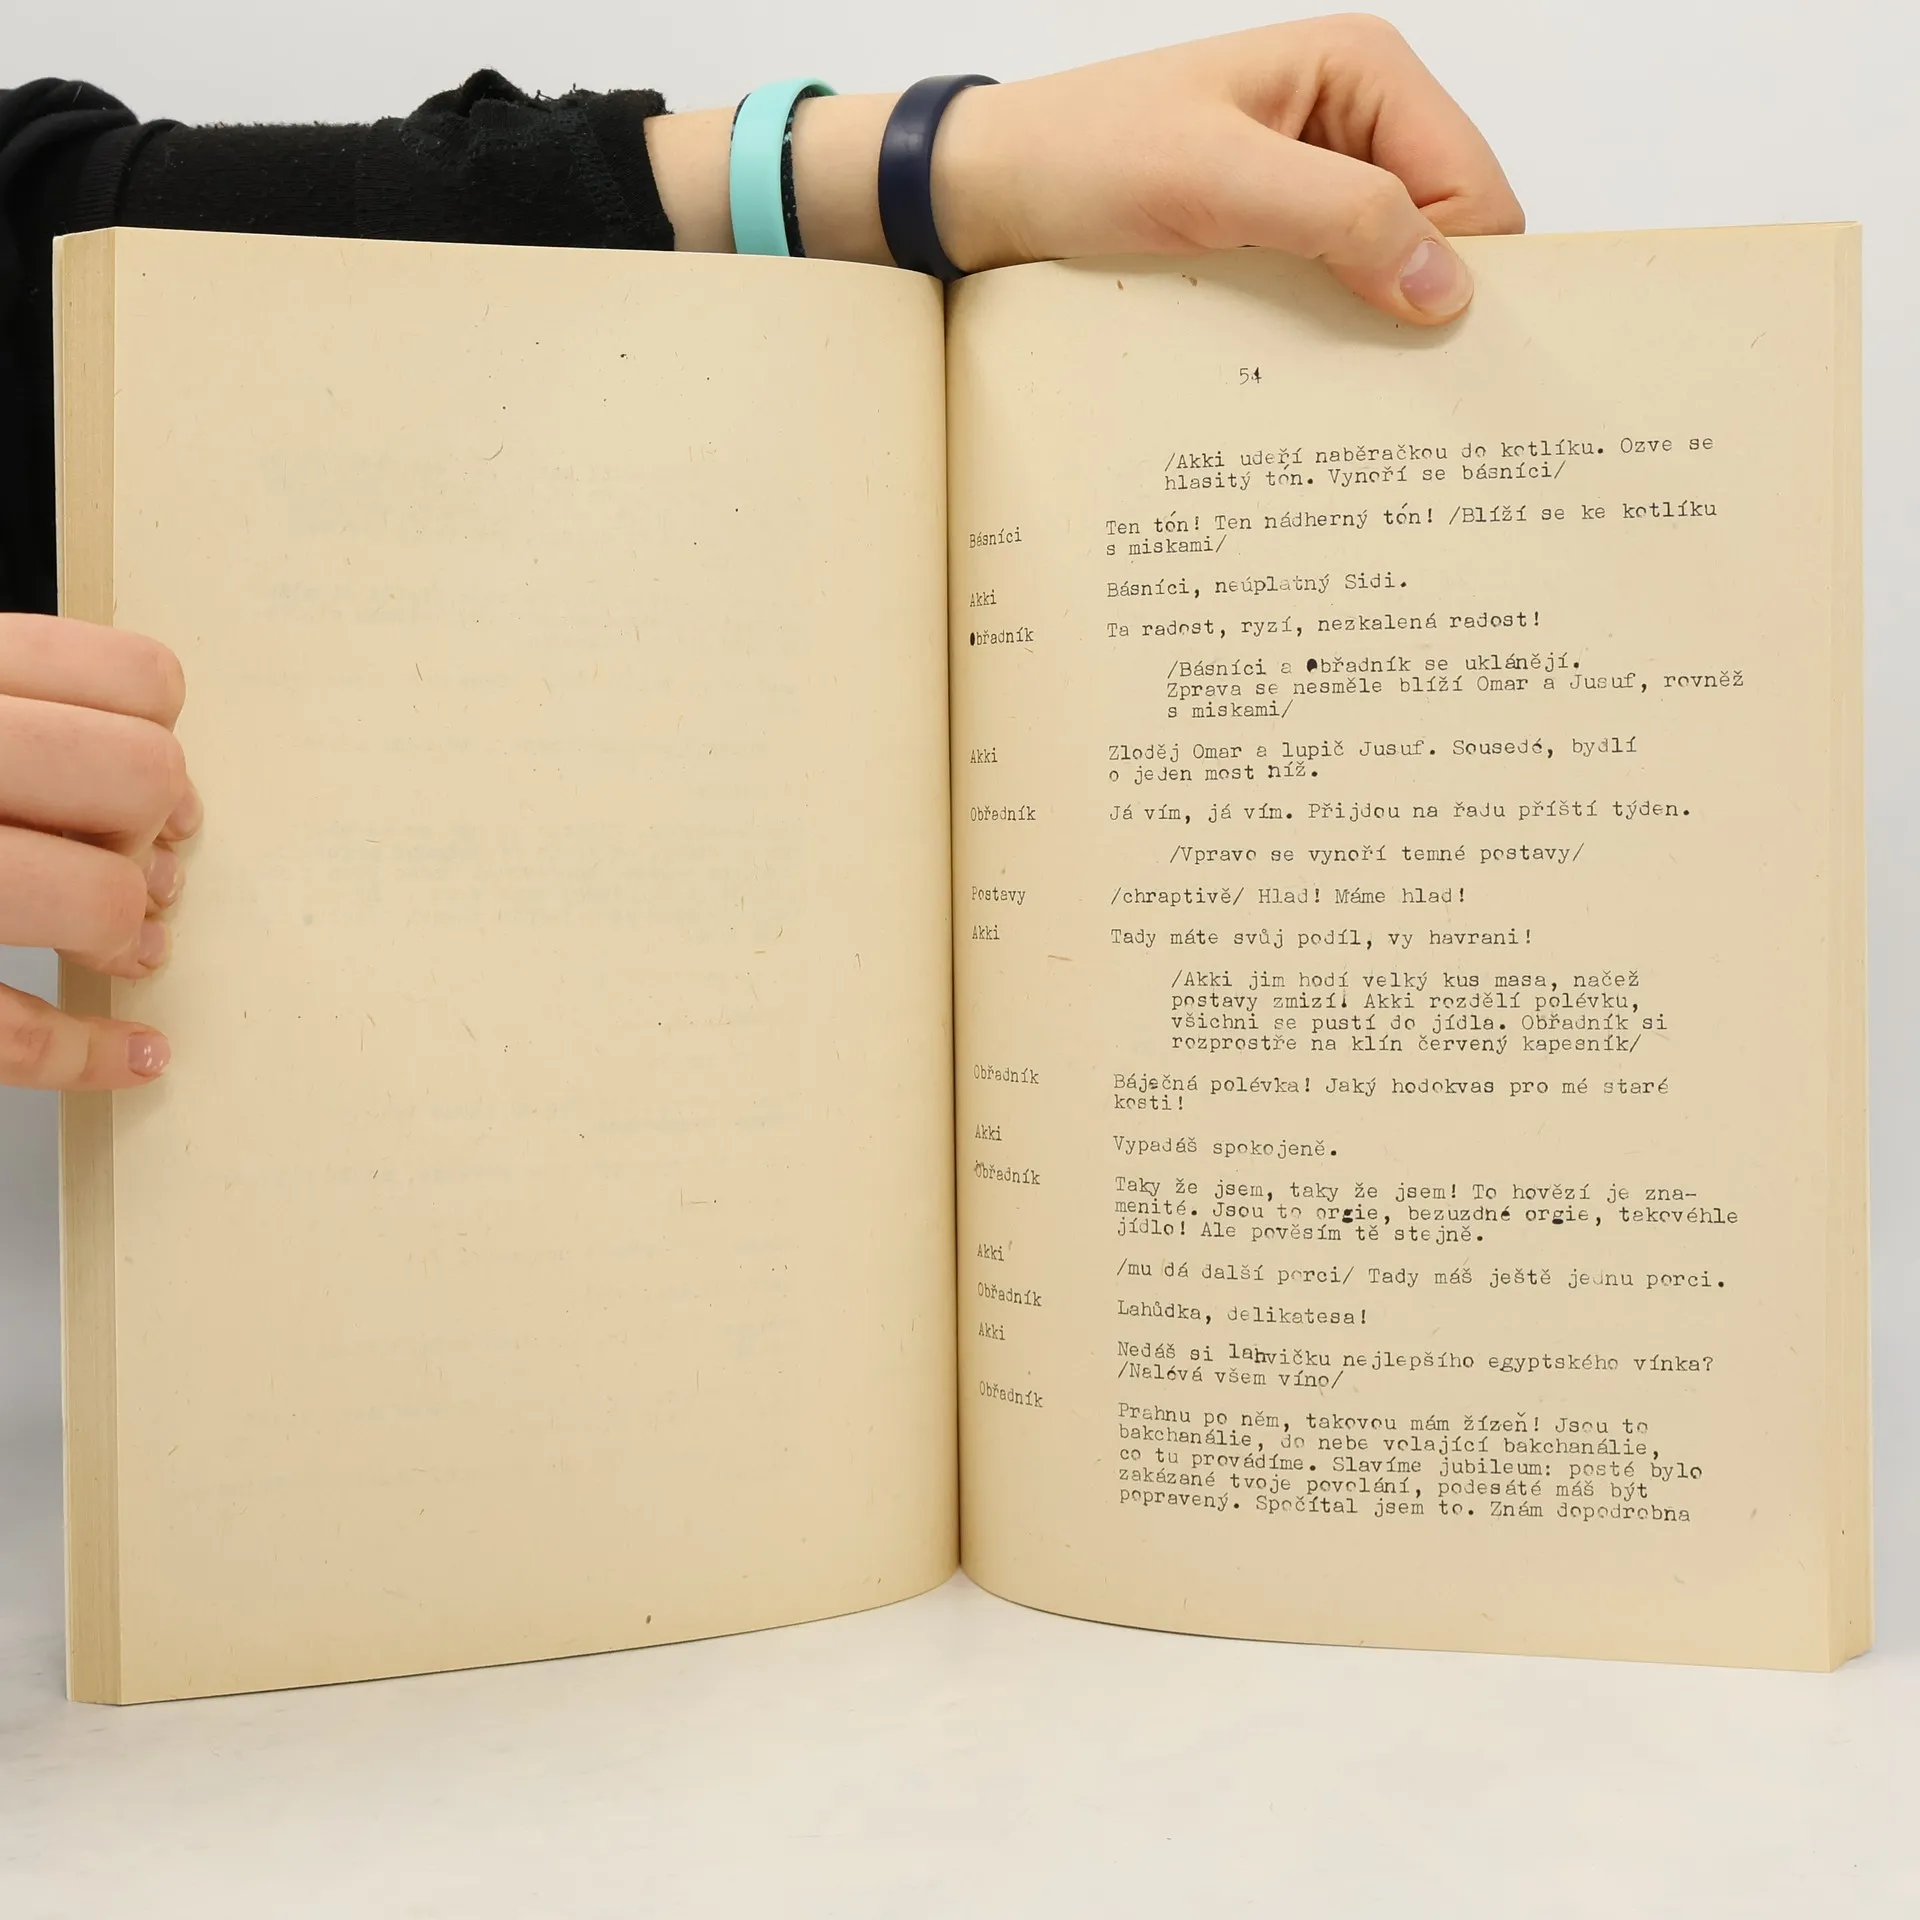 54
/Akki udeří naběračkou do kotlíku. Ozve se
hlasitý tón. Vynoří se básníci/
Básníci Ten tón! Ten nádherný tón! /Blíží se ke kotlíku
s miskami/
Akki Básníci, neúplatný Sidi.
Obřadník Ta radost, ryzí, nezkalená radost!
/Básníci a Obřadník se uklánějí.
Zprava se nesměle blíží Omar a Jusuf, rovněž
s miskami/
Akki Zloděj Omar a lupič Jusuf. Sousedé, bydlí
o jeden most níž.
Obřadník Já vím, já vím. Přijdou na řadu příští týden.
/Vpravo se vynoří temné postavy/
Postavy /chraptivě/ Hlad! Máme hlad!
Akki Tady máte svůj podíl, vy havrani!
/Akki jim hodí velký kus masa, načež
postavy zmizí. Akki rozdělí polévku,
všichni se pustí do jídla. Obřadník si
rozprostře na klín červený kapesník/
Obřadník Báječná polévka! Jaký hodokvas pro mé staré
kosti!
Akki Vypadáš spokojeně.
Obřadník Taky že jsem, taky že jsem! To hovězí je zna-
menité. Jsou to orgie, bezuzdné orgie, takovéhle
jídlo! Ale pověsím tě stejně.
Akki /mu dá další porci/ Tady máš ještě jednu porci.
Obřadník Lahůdka, delikatesa!
Akki Nedáš si lahvičku nejlepšího egyptského vínka?
/Nalévá všem víno/
Obřadník Prahnu po něm, takovou mám žízeň! Jsou to
bakchanálie, do nebe volající bakchanálie,
co tu provádíme. Slavíme jubileum: posté bylo
zakázané tvoje povolání, podesáté máš být
popravený. Spočítal jsem to. Znám dopodrobna